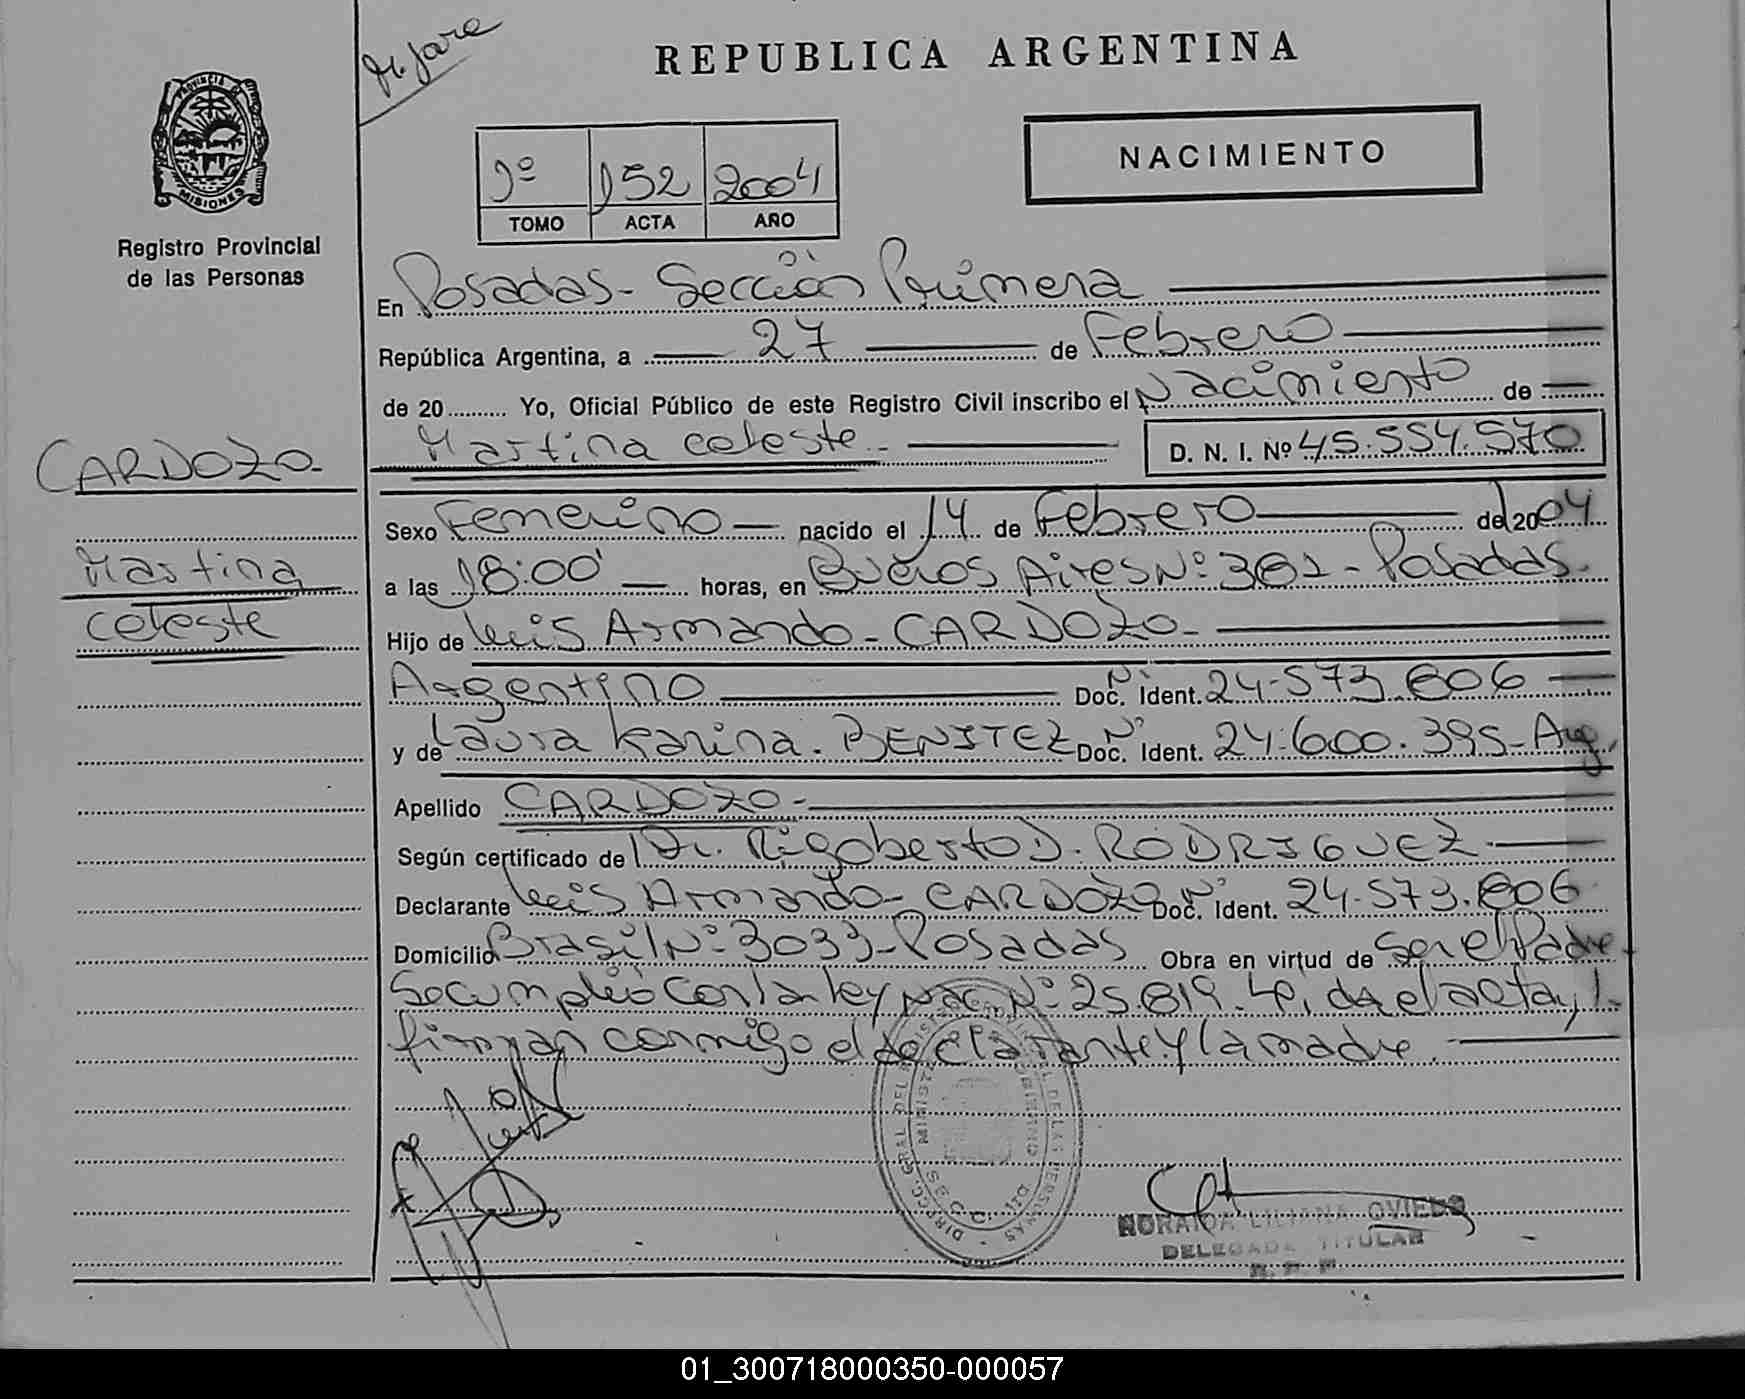 REPUBLICA ARGENTINA
NACIMIENTO
1º 152 2004
TOMO ACTA AÑO
PROVINCIA DE
MISIONES
Registro Provincial
de las Personas
En Posadas - Sección Primera
República Argentina, a 27 de Febrero
de 20 Yo, Oficial Público de este Registro Civil inscribo el Nacimiento de
Martina Celeste.- D. N. I. Nº 45.554.570
CARDOZO-
Martina
Celeste
Sexo Femenino nacido el 14 de Febrero de 2004
a las 18:00' horas, en Buenos Aires Nº: 381 - Posadas.
Hijo de Luis Armando - CARDOZO -
Argentino Doc. Nº Ident. 24.573.806
y de Laura Karina. BENITEZ Doc. Nº Ident. 24.600.395 - Arg.
Apellido CARDOZO -
Según certificado de Dr. Rigoberto D. RODRIGUEZ.
Declarante Luis Armando - CARDOZO Doc. Nº Ident. 24.573.806
Domicilio Brasil Nº: 3033 - Posadas Obra en virtud de Ser el Padre
Se cumplió con la ley Nac. Nº: 25.819. el acta y
firman conmigo el declarante y la madre.
LILIANA OVIEDO
DELEGADA TITULAR
01_300718000350-000057